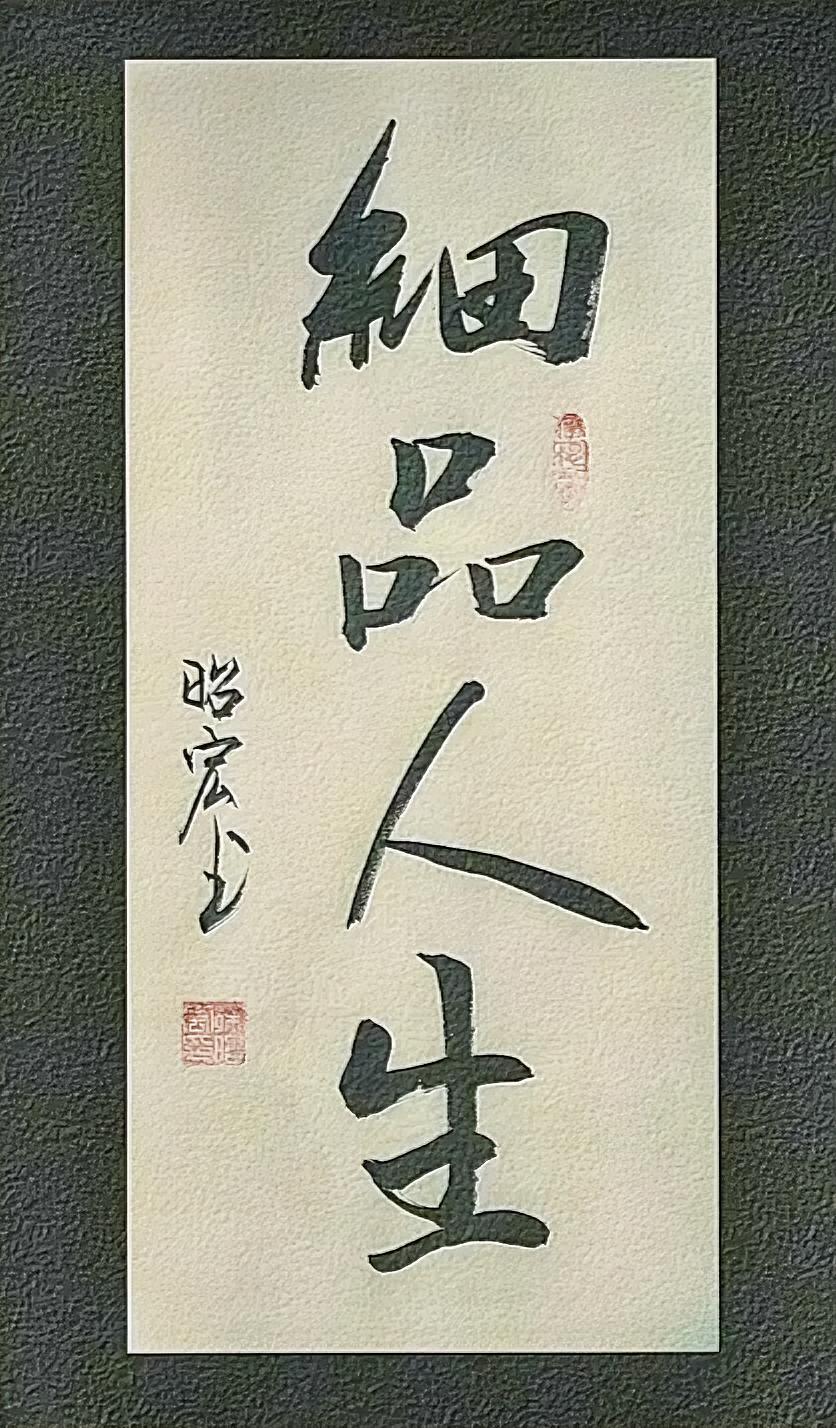 細品人生
昭宏书